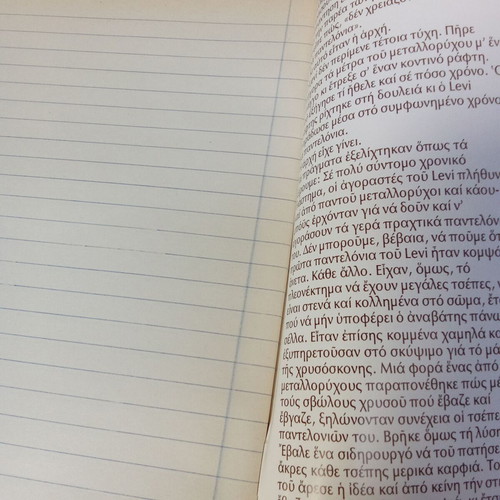 παρέα τῶν
πώς, «δέν χρειάζο
παντελόνια».
εἶταν ἡ ἀρχή.
δέν περίμενε τέτοια τύχη. Πῆρε
τά μέτρα τοῦ μεταλλορύχου μ' ἕν
κι ἔτρεξε σ' ἕναν κοντινό ράφτη.
ἐξήγησε τί ἤθελε καί σέ πόσο χρόνο. Ὁ
ρίχτηκε στή δουλειά κι ὁ Levi
μέσα στό συμφωνημένο χρόνο
παντελόνια.
ἀρχή εἶχε γίνει.
πράγματα ἐξελίχτηκαν ὅπως τά
Σέ πολύ σύντομο χρονικό
διάστημα, οἱ ἀγοραστές τοῦ Levi πλήθυν
ἀπό παντοῦ μεταλλορύχοι καί κάου-
ἐρχόνταν γιά νά δοῦν καί ν'
ἀγοράσουν τά γερά πραχτικά παντελόν
Δέν μποροῦμε, βέβαια, νά ποῦμε ὅτ
πρῶτα παντελόνια τοῦ Levi ἦταν κομψά
ἄνετα. Κάθε ἄλλο. Εἶχαν, ὅμως, τό
πλεονέκτημα νά ἔχουν μεγάλες τσέπες, ν
εἶναι στενά καί κολλημένα στό σῶμα, ἔτ
πού νά μήν ὑποφέρει ὁ ἀναβάτης πάνω
σέλλα. Εἶταν ἐπίσης κομμένα χαμηλά κα
ἐξυπηρετοῦσαν στό σκύψιμο γιά τό μά
τῆς χρυσόσκονης. Μιά φορά ἕνας ἀπό
μεταλλορύχους παραπονέθηκε πώς με
τούς σβώλους χρυσοῦ πού ἔβαζε καί
ἔβγαζε, ξηλώνονταν συνέχεια οἱ τσέπε
παντελονιῶν του. Βρῆκε ὅμως τή λύσ
Ἔβαλε ἕνα σιδηρουργό νά τοῦ πατήσε
ἄκρες κάθε τσέπης μερικά καρφιά. Το
τοῦ ἄρεσε ἡ ἰδέα καί ἀπό κείνη τήν στ